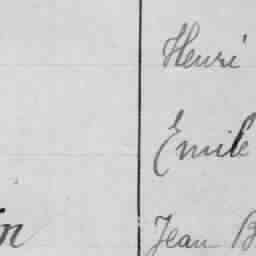 Henri
Emile
Jean B